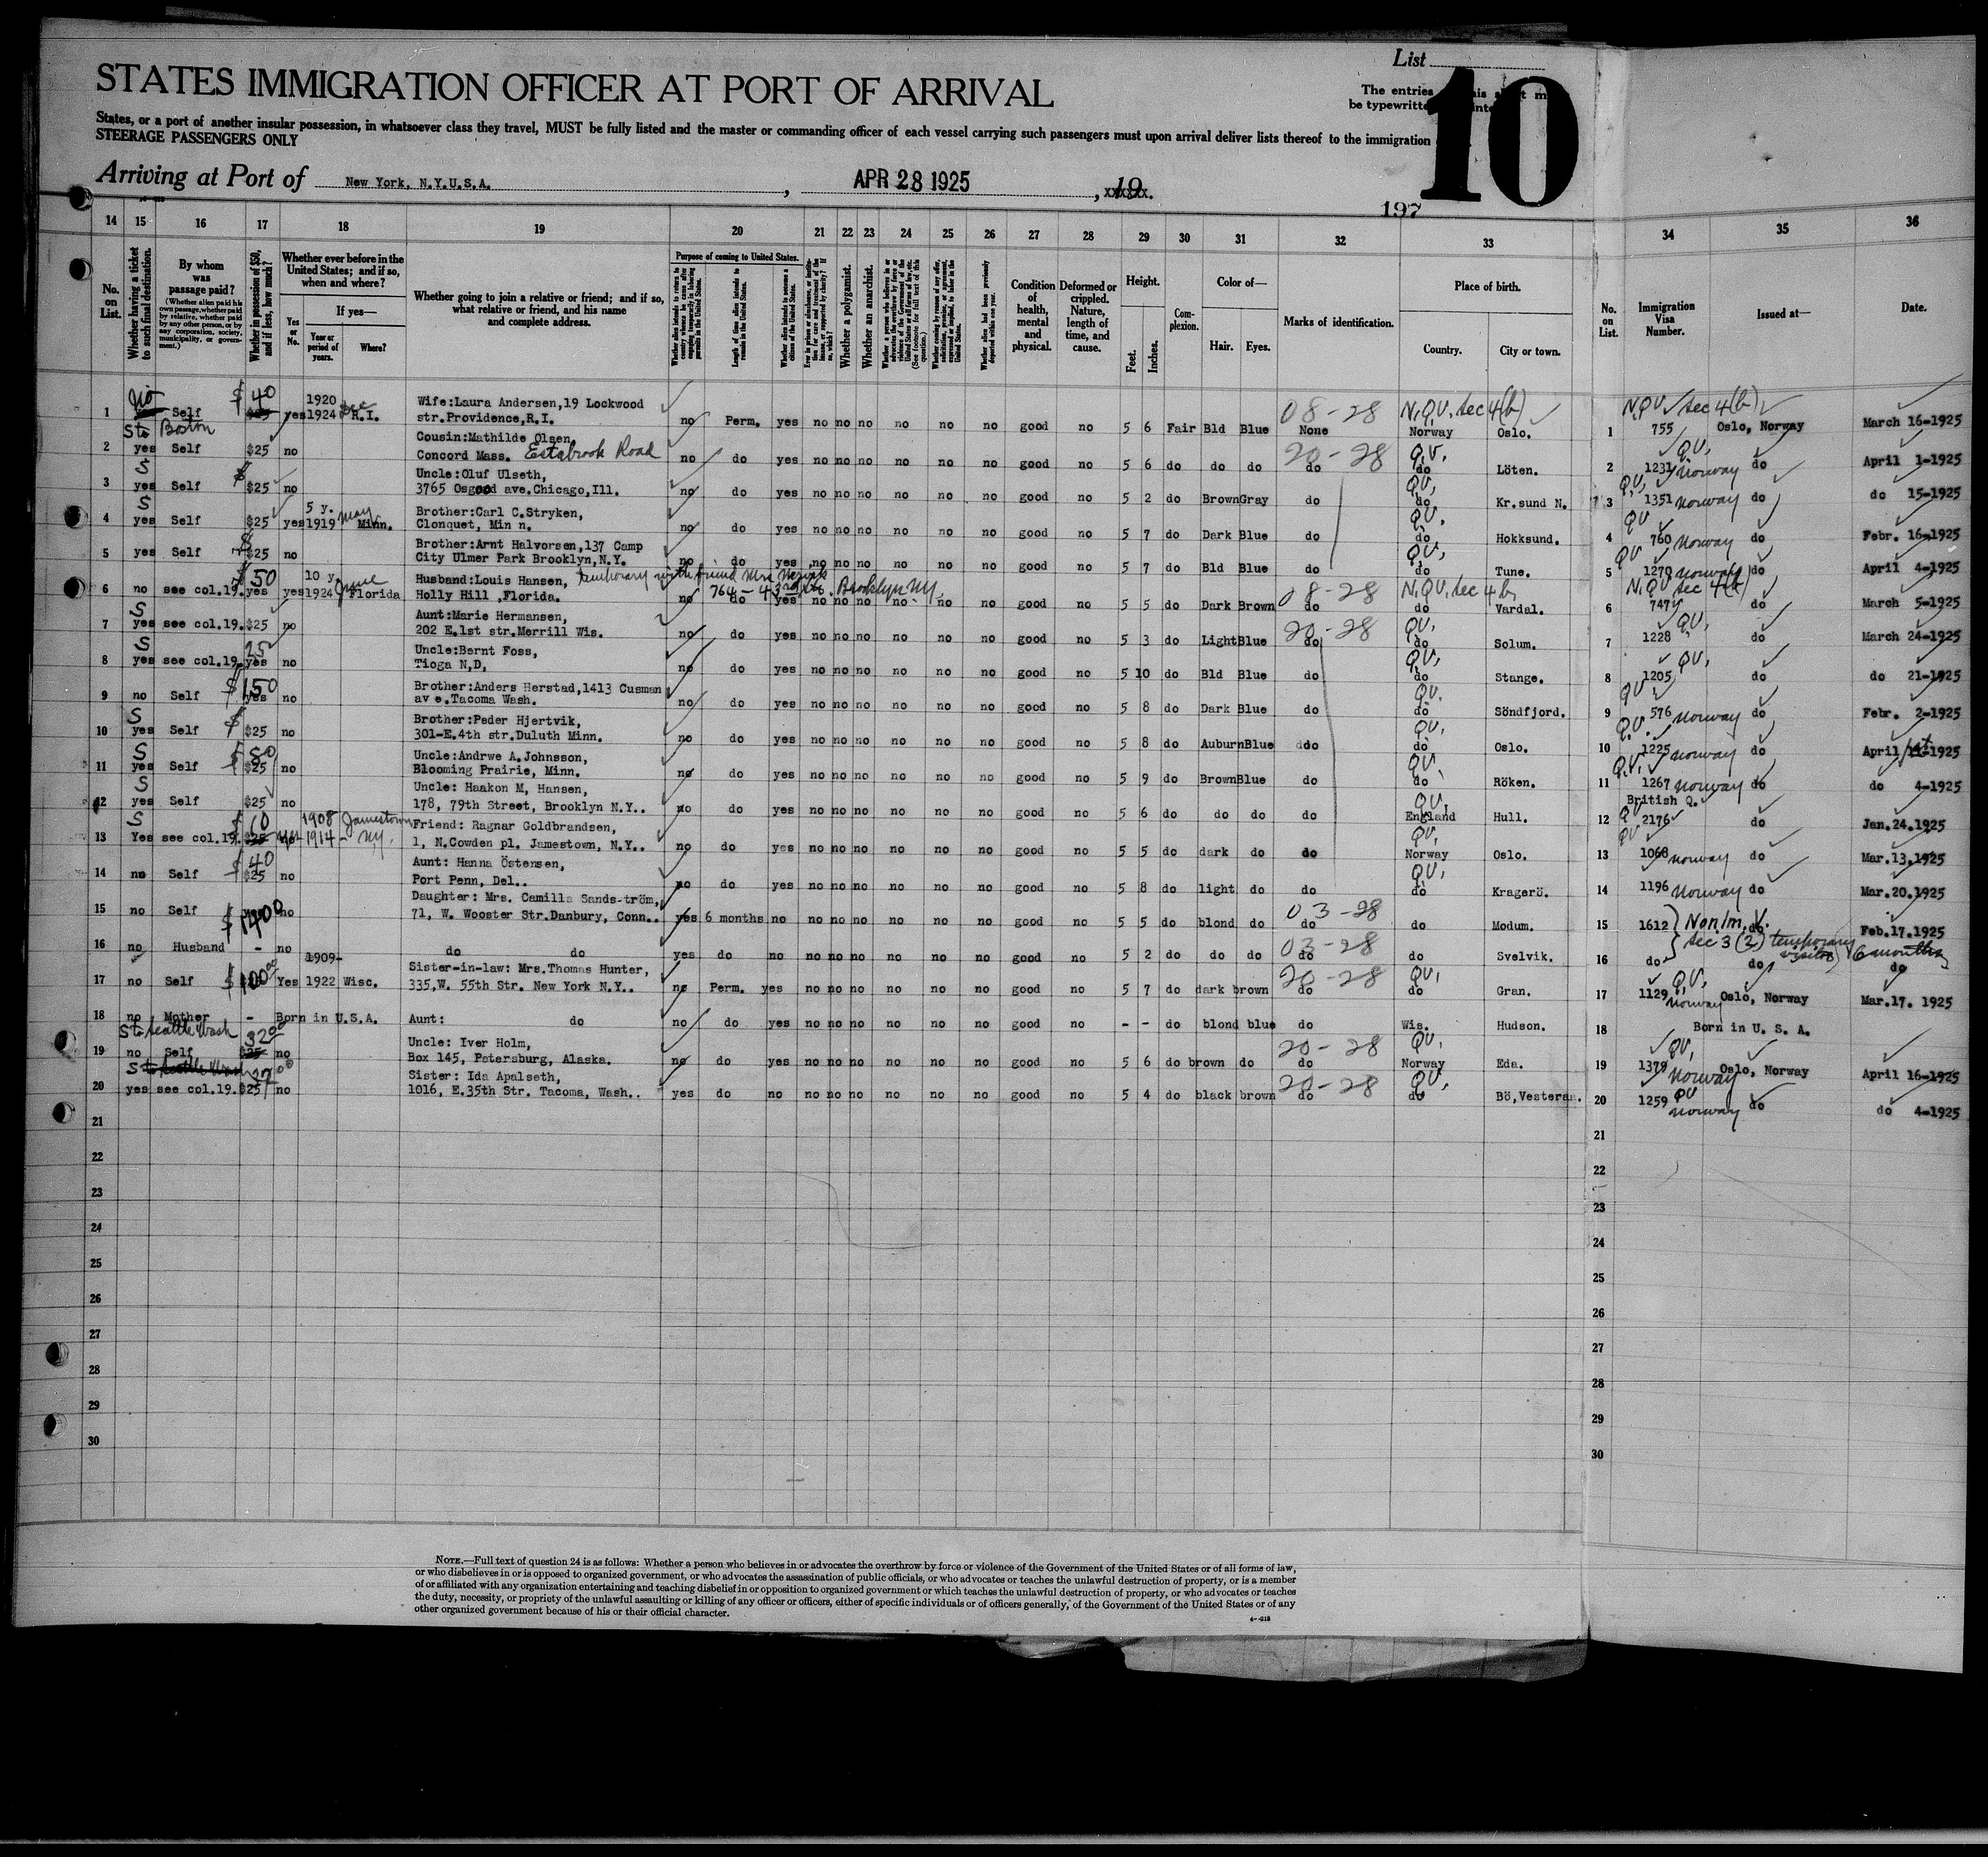 List
STATES IMMIGRATION OFFICER AT PORT OF ARRIVAL
10
The entries
be typewritte
States, or a port of another insular possession, in whatsoever class they travel, MUST be fully listed and the master or commanding officer of each vessel carrying such passengers must upon arrival deliver lists thereof to the immigration
STEERAGE PASSENGERS ONLY
Arriving at Port of New York, N.Y.U.S.A. , APR 28 1925 , 19
197
14 15 16 17 18 19 20 21 22 23 24 25 26 27 28 29 30 31 32 33 34 35 36
No. on List.
Whether having a ticket to such final destination.
By whom was passage paid?
(Whether alien paid his own passage, whether paid by relative, whether paid by any other person, or by any corporation, society, municipality, or government.)
Whether in possession of $50, and if less, how much?
Whether ever before in the United States; and if so, when and where?
Yes or No.
If yes—
Year or period of years.
Where?
Whether going to join a relative or friend; and if so, what relative or friend, and his name and complete address.
Purpose of coming to United States.
Length of time alien intends to remain in the United States.
Whether alien intends to become a citizen of the United States.
Whether a polygamist.
Whether an anarchist.
Condition of health, mental and physical.
Deformed or crippled. Nature, length of time, and cause.
Height.
Feet.
Inches.
Complexion.
Color of—
Hair.
Eyes.
Marks of identification.
Place of birth.
Country.
City or town.
No. on List.
Immigration Visa Number.
Issued at—
Date.
No $40 1920 Wife:Laura Andersen,19 Lockwood 08-28 N.QV. sec 4(b) N.QV. sec 4(b)
1 Self $25 yes 1924 Dec R.I. str.Providence,R.I. no Perm. yes no no no no no no good no 5 6 Fair Bld Blue None Norway Oslo. 1 755 Oslo, Norway March 16-1925
S to Boston Cousin:Mathilde Olsen 20-28 QV. QV.
2 yes Self $25 no Concord Mass. Estabrook Road no do yes no no no no no no good no 5 6 do do do do do Löten. 2 1231 Norway do April 1-1925
S $ Uncle:Oluf Ulseth, QV. QV.
3 yes Self $25 no 3765 Osgood ave.Chicago,Ill. no do yes no no no no no no good no 5 2 do Brown Gray do do Kr.sund N. 3 1351 Norway do do 15-1925
S 5 y. May Brother:Carl C.Stryken, QV. QV
4 yes Self $25 yes 1919 Minn. Clonquet, Min n. no do yes no no no no no no good no 5 7 do Dark Blue do do Hokksund. 4 760 Norway do Febr. 16-1925
Brother:Arnt Halvorsen,137 Camp QV. QV
5 yes Self $25 no City Ulmer Park Brooklyn,N.Y. no do yes no no no no no no good no 5 7 do Bld Blue do do Tune. 5 1270 Norway do April 4-1925
$50 10 y. June Husband:Louis Hansen, temporary with friend Mrs 08-28 N.QV. sec 4 b N.QV sec 4(b)
6 no see col.19. yes yes 1924 Florida Holly Hill ,Florida. 764-43rd Brooklyn NY. no do yes no no no no no no good no 5 5 do Dark Brown do do Vardal. 6 747 do March 5-1925
S Aunt:Marie Hermansen, 20-28 QV. QV.
7 yes see col.19. $25 no 202 E.1st str.Merrill Wis. no do yes no no no no no no good no 5 3 do Light Blue do do Solum. 7 1228 do March 24-1925
S 25 Uncle:Bernt Foss, QV. QV.
8 yes see col.19. yes no Tioga N,D, no do yes no no no no no no good no 5 10 do Bld Blue do do Stange. 8 1205 do do 21-1925
$150 Brother:Anders Herstad,1413 Cusman QV. QV
9 no Self yes no av e.Tacoma Wash. no do yes no no no no no no good no 5 8 do Dark Blue do do Söndfjord. 9 576 Norway do Febr. 2-1925
S $ Brother:Peder Hjertvik, QV. QV.
10 yes Self $25 no 301-E.4th str.Duluth Minn. no do yes no no no no no no good no 5 8 do Auburn Blue do do Oslo. 10 1225 Norway do April 1925
S $50 Uncle:Andrwe A.Johnsson, QV. QV.
11 yes Self $25 no Blooming Prairie, Minn. no do yes no no no no no no good no 5 9 do Brown Blue do do Röken. 11 1267 Norway do do 4-1925
S Uncle: Haakon M, Hansen, QV. British Q.
12 yes Self $25 no 178, 79th Street, Brooklyn N.Y.. no do yes no no no no no no good no 5 6 do do do do England Hull. 12 2176 do Jan.24.1925
S $10 1908 Jamestown Friend: Ragnar Goldbrandsen, QV. QV
13 Yes see col.19. $25 yes 1914- NY. 1, N.Cowden pl. Jamestown, N.Y.. no do yes no no no no no no good no 5 5 do dark do do Norway Oslo. 13 1068 Norway do Mar.13,1925
$40 Aunt: Hanna Östensen, QV.
14 no Self $25 no Port Penn, Del.. no do yes no no no no no no good no 5 8 do light do do do Kragerö. 14 1196 Norway do Mar.20.1925
Daughter: Mrs. Camilla Sands-tröm, 03-28
15 no Self $1400 no 71, W. Wooster Str.Danbury, Conn.. yes 6 months no no no no no no no good no 5 5 do blond do do do Modum. 15 1612 Non/m. V. do Feb.17.1925
03-28 sec 3 (2) temporary visitor 6 months
16 no Husband - no do do yes do no no no no no no no good no 5 2 do do do do do Svelvik. 16 do do do
$100 1909- Sister-in-law: Mrs.Thomas Hunter, 20-28 QV. QV.
17 no Self Yes 1922 Wisc. 335,W. 55th Str. New York N.Y.. no Perm. yes no no no no no no good no 5 7 do dark brown do do Gran. 17 1129 Norway Oslo, Norway Mar.17. 1925
18 no Mother - Born in U.S.A. Aunt: do no do yes no no no no no no good no - - do blond blue do Wis. Hudson. 18 Born in U. S. A.
S to Seattle Wash 32 Uncle: Iver Holm, 20-28 QV. QV.
19 no Self $25 no Box 145, Petersburg, Alaska. no do yes no no no no no no good no 5 6 do brown do do Norway Eda. 19 1379 Norway Oslo, Norway April 16-1925
S to Seattle Wash 27 Sister: Ida Apalseth, 20-28 QV. QV
20 yes see col.19. $25 no 1016, E.35th Str. Tacoma, Wash.. yes do no no no no no no no good no 5 4 do black brown do do Bö,Vesteraa. 20 1259 Norway do do 4-1925
21 21
22 22
23 23
24 24
25 25
26 26
27 27
28 28
29 29
30 30
NOTE.—Full text of question 24 is as follows: Whether a person who believes in or advocates the overthrow by force or violence of the Government of the United States or of all forms of law,
or who disbelieves in or is opposed to organized government, or who advocates the assassination of public officials, or who advocates or teaches the unlawful destruction of property, or is a member
of or affiliated with any organization entertaining and teaching disbelief in or opposition to organized government or which teaches the unlawful destruction of property, or who advocates or teaches
the duty, necessity, or propriety of the unlawful assaulting or killing of any officer or officers, either of specific individuals or of officers generally, of the Government of the United States or of any
other organized government because of his or their official character.